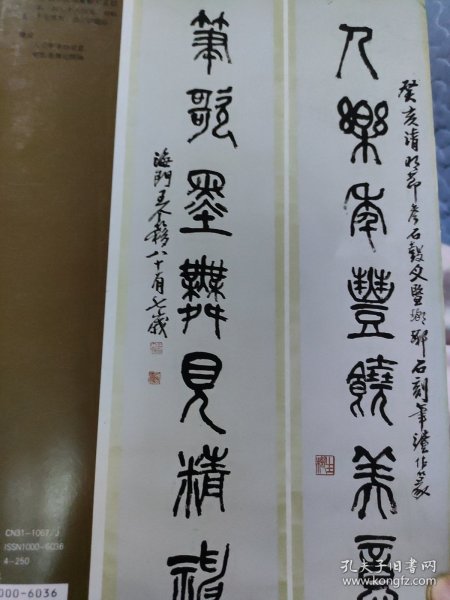 人樂年豐饒美意
癸亥清明節參石鼓文暨瑯邪石刻筆澧作篆
筆歌墨舞見精神
海門王个簃八十有七歲
CN31-1067/J
ISSN1000-6036
4-250
000-6036
孔夫子旧书网
book.kongfz.com